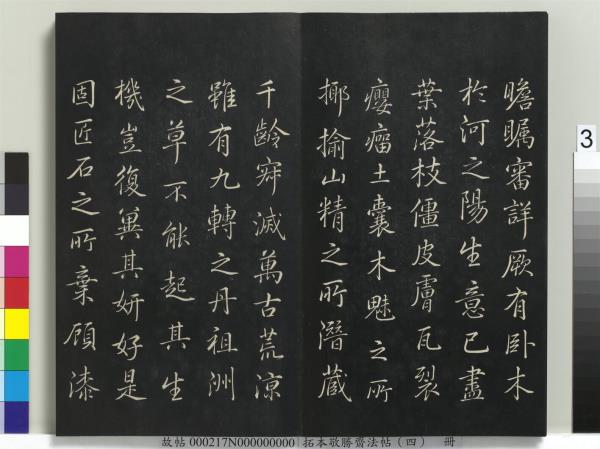 瞻矚審詳厥有卧木
於河之陽生意已盡
葉落枝僵皮膚瓦裂
癭瘤土囊木魅之所
揶揄山精之所潛藏
千齡寂滅萬古荒涼
雖有九轉之丹祖洲
之草不能起其生
機豈復冀其妍好是
固匠石之所棄顧漆
3
故帖 000217N000000000 拓本敬勝齋法帖（四） 冊